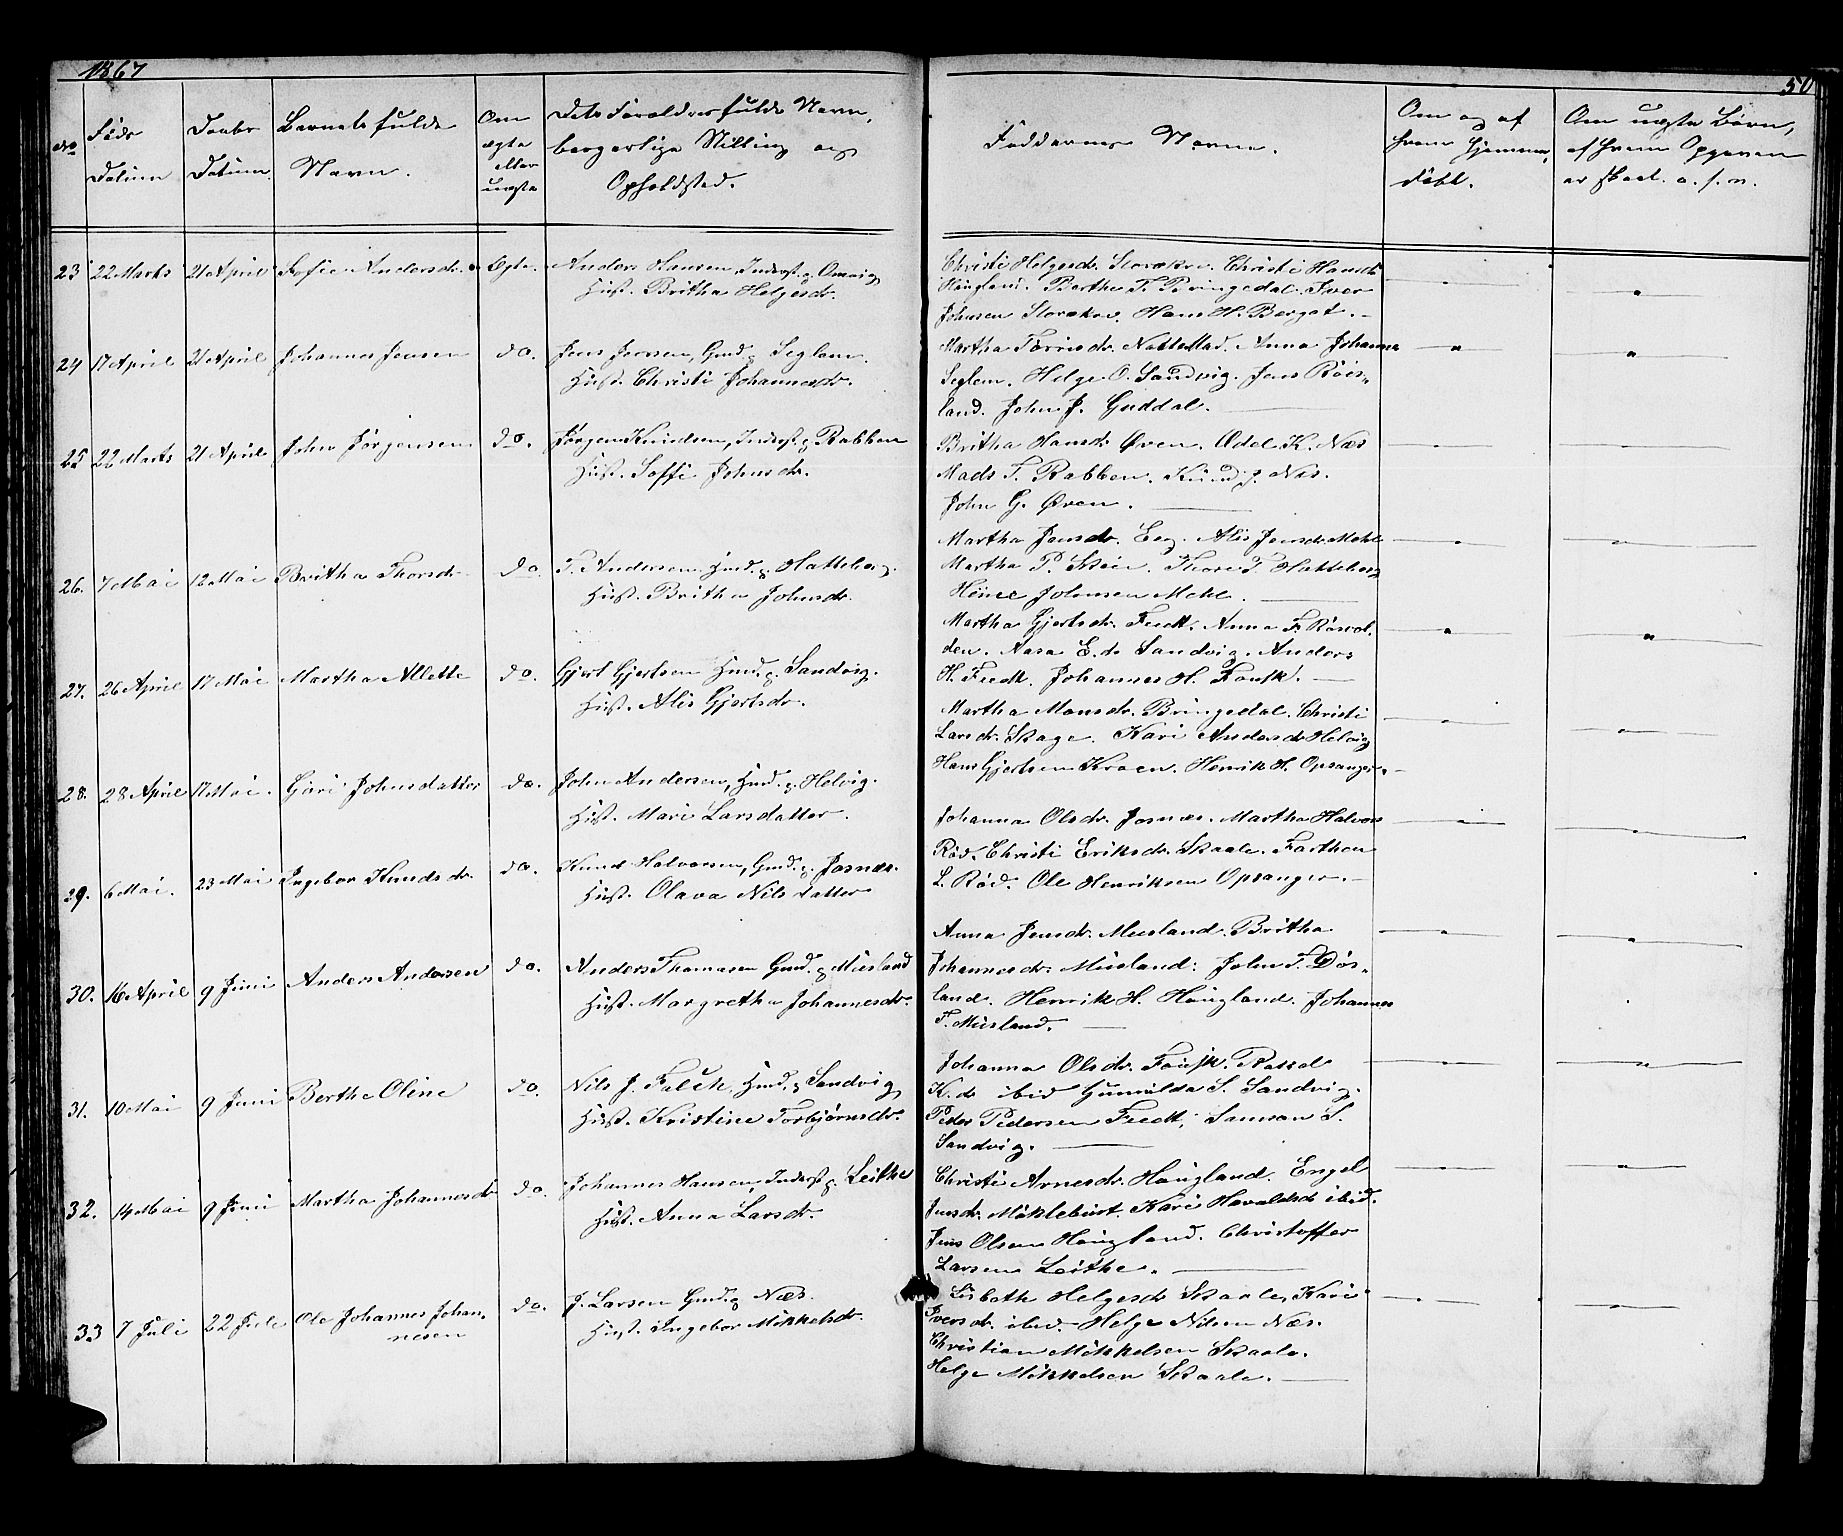 1867
50
No
Føds Datum
Daabs Datum
Barnets fulde Navn.
Om ægte eller uægte
Dets Forældres fulde Navn, borgerlige Stilling og Opholdsted.
Faddernes Navne.
Om og af hvem hjemme døbt.
Om uægte Børn, af hvem Opgaven er skeet. o. s. v.
23 22 Marts 21 April Sofie Andersdr. Ægte. Anders Hansen, Inderst. p. Omvig
Hust. Britha Helgesdr.
Christi Helgesdr. Storaker. Christi Hansdr
Haugland. Berthe T. Bringedal. Iver
Johnsen Storaker. Hans H. Berget.
24 17 April 21 April Johannes Jensen do. Jens Jenssen, Gmd. p. Seglem.
Hust. Christi Johannesdr.
Martha Tørresdr. Nattestad. Anna Johannes
Seglem. Helge O. Sandvig. Jens Røis-
land. John J. Guddal.
25 22 Marts 21 April John Jørgensen do. Jørgen Knudsen, Inderst. p. Rabben
Hust. Soffi Johnsdr.
Britha Hansdr Øren. Adel K. Næs
Mads T. Rabben. Knud J. Næs.
John G. Øren.
26. 7 Mai 12 Mai Britha Thorsdr do. T. Andersen Hmd. p. Hatteberg.
Hust. Britha Johnsdr.
Martha Jensdr. Eeg. Alis Jensdr. Mehl
Martha P. Skeie. Thore T. Hatteberg
Johnsen Mehl.
27. 26 April 17 Mai Martha Allette do. Gjert Gjertsen Hmd. p. Sandvig.
Hust. Alis Gjertsdr.
Martha Gjertsdr. Feedt. Anna F. Røsvol-
den. Aasa E. dr Sandvig. Anders
H. Feedt. Johannes H. Fousk.
28. 28 April 17 Mai. Guri Johnsdatter do. John Andersen, Hmd. p. Helvig.
Hust. Mari Larsdatter.
Martha Monsdr. Bringedal. Christi
Larsdr. Skage. Kari Andersdr Helvig
Hans Gjertsen Kroen. Henrik H. Opsanger.
29. 6 Mai. 23 Mai Ingebor Knudsdr. do. Knud Halvorsen, Gmd. p. Josnæs.
Hust. Olava Nilsdatter
Johanna Olsdr. Josnæs. Martha Halvors
Rød. Christi Eriksdr. Skaale. Farthen
L. Rød. Ole Henriksen Opsanger.
30. 16 April 9 Juni Anders Andersen do. Anders Thomasen Gmd. p. Musland
Hust. Margretha Johannesdr.
Anna Jensdr. Musland. Britha
Johannesdr. Musland. John T. Døs-
land. Henrik H. Haugland. Johannes
T. Musland.
31. 10 Mai 9 Juni Berthe Oline do. Nils J. Falch, Hmd. p. Sandvig
Hust. Kristine Torbjørnsdr.
Johanna Olsdr. Fousk. Rakel
K. dr ibid Gunnilda S. Sandvig.
Peder Pedersen Feedt, Samson S.
Sandvig.
32. 14 Mai 9 Juni Martha Johannesdr do. Johannes Hansen, Inderst p. Leithe
Hust. Anna Larsdr.
Christi Arnesdr. Haugland. Engel
Jensdr. Miklebust. Kari Havaldsdr ibid.
Jens Olsen Haugland. Christoffer
Larsen Leithe.
33 7 Juli 22 Jule Ole Johannes Johan-
nesen do. J. Larsen Gmd. p. Næs.
Hust. Ingebor Mikkelsdr.
Lisbeth Helgesdr Skaale, Kari
Iversdr. ibid. Helge Nilsen Næs.
Christian Mikkelsen Skaale.
Helge Mikkelsen Skaale.